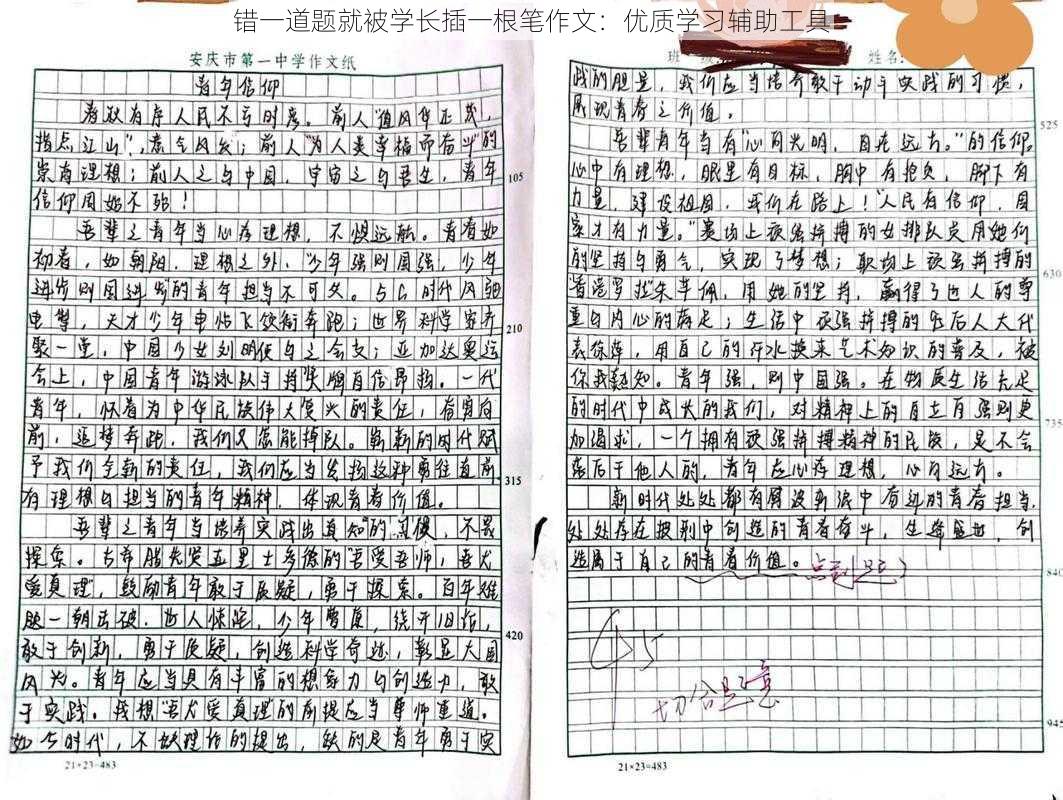 错一道题就被学长插一根笔作文：优质学习辅助工具
安庆市第一中学作文纸
青年信仰
春秋有序人民不亏时彦。前人"道风华正茂，
指点江山"，意气风发；前人"为人类幸福而奋斗"的
崇高理想；前人之与中国，宇宙之与吾生，青年
信仰周始不弱！
105
吾辈之青年当心存理想，不惧远航。青春如
初春，如朝阳，理想之外，少年强则国强，少年
进步则国进步的青年担当不可失。与5G时代风驰
电掣，天才少年申怡飞领衔奔跑；世界科学家齐
210
聚一堂，中国少女刘明侦与之会友；亚加达奥运
会上，中国青年游泳队手持奖牌自信昂扬。一代
青年，怀着为中华民族伟大复兴的责任，奋勇向
前，追梦奔跑，我们又怎能掉队。崭新的时代赋
予我们全新的责任，我们应当发扬这种勇往直前
315
有理想与担当的青年精神，体现青春价值。
吾辈之青年当培养实践出真知的习惯，不畏
探索。古希腊先贤亚里士多德的"吾爱吾师，吾尤
爱真理"，鼓励青年敢于质疑，勇于探索。百年难
题一朝击破，世人惊呼，少年曹原，绕开旧话，
420
敢于创新，勇于质疑，创造科学奇迹，彰显大国
风范。青年应当具有丰富的想象力与创造力，敢
于实践。我想"吾尤爱真理"的前提应当尊师重道。
如今时代，不缺理论的提出，缺的是青年勇于实
21×23=483
班 级 姓名：
践的胆量，我们应当培养敢于动手实践的习惯，
展现青春之价值。
525
吾辈青年当有"心向光明，目在远方。"的信仰。
心中有理想，眼里有目标，胸中有抱负，脚下有
力量，建设祖国，我们在路上！"人民有信仰，国
家才有力量。"赛场上顽强拼搏的女排队员用她们
的坚持与勇气，实现了梦想；职场上顽强拼搏的
630
"香港罗拉"朱芈佩，用她的坚持，赢得了世人的尊
重与内心的满足；生活中顽强拼搏的90后人大代
表徐萍，用自己的汗水换来艺术知识的普及，被
你我熟知。青年强，则中国强。在物质生活充足
的时代中成长的我们，对精神上的自立自强则更
735
加渴求，一个拥有顽强拼搏精神的民族，是不会
落后于他人的，青年应心存理想，心向远方。
新时代处处都有风波新浪中前进的青春担当，
处处存在披荆中创造的青春奋斗，生逢盛世，创
造属于自己的青春价值。点题
840
切合题意
945
21×23=483